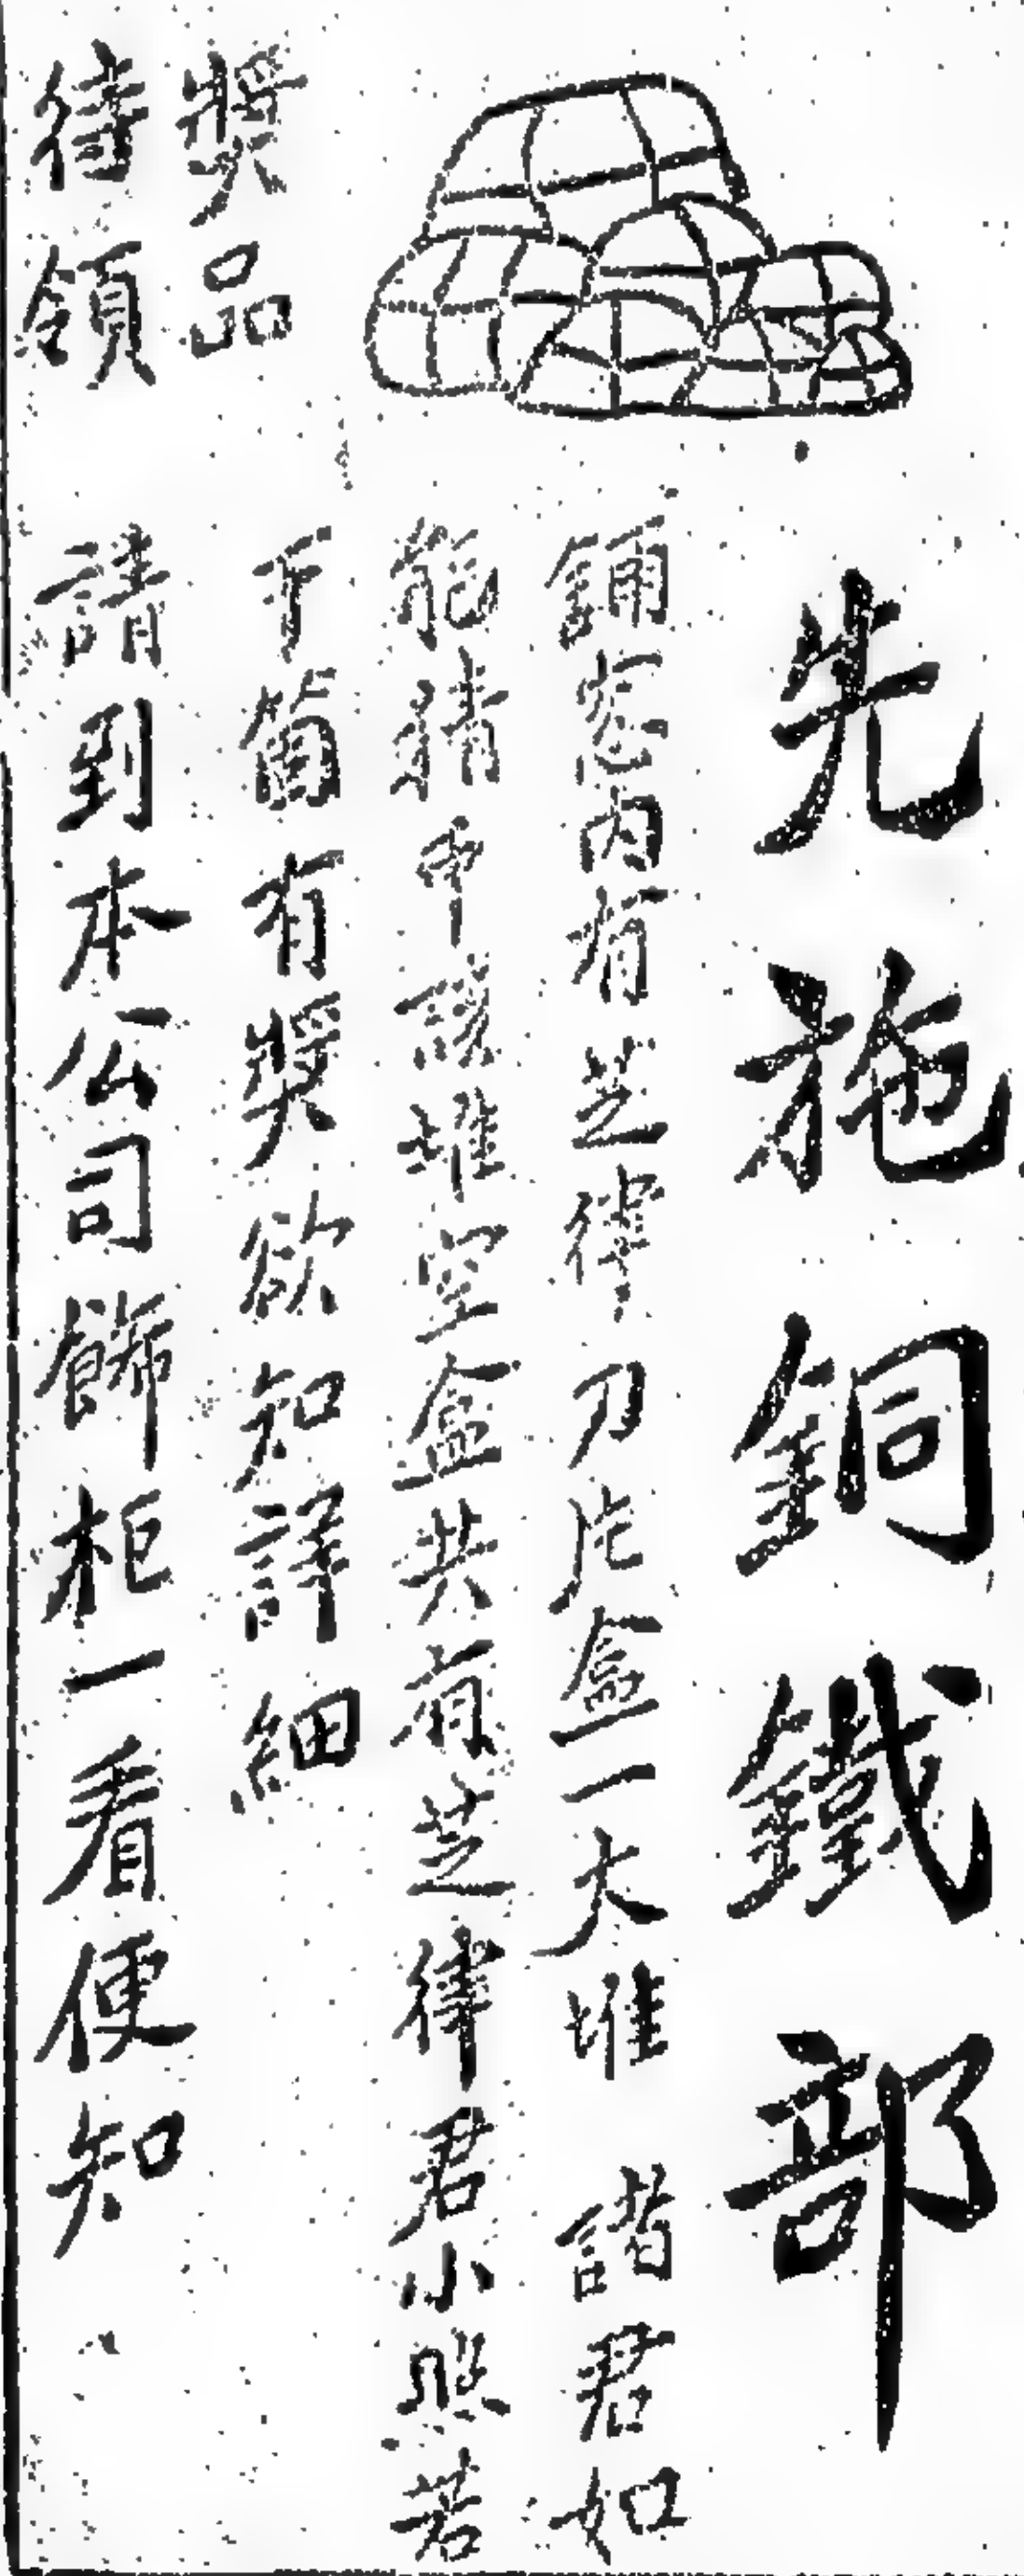 獎品
待領
先施銅鐵部
鋪窓內有芝律刀片盒一大堆 諸君如
能猜中該堆空盒共有芝律君小照若
干箇有獎欲知詳細
請到本公司飾柜一看便知